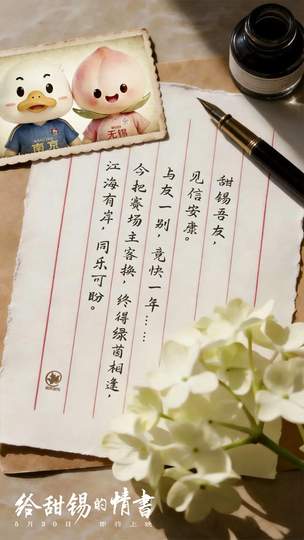 南京
无锡
甜锡吾友，
见信安康。
与友一别，竟快一年……
今把赛场主客换，终得绿茵相逢，
江海有岸，同乐可盼。
给甜锡的情書
5月30日 即将上映